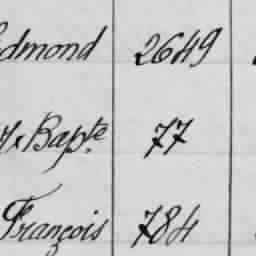 Edmond 2649
x Bapte 77
François 784